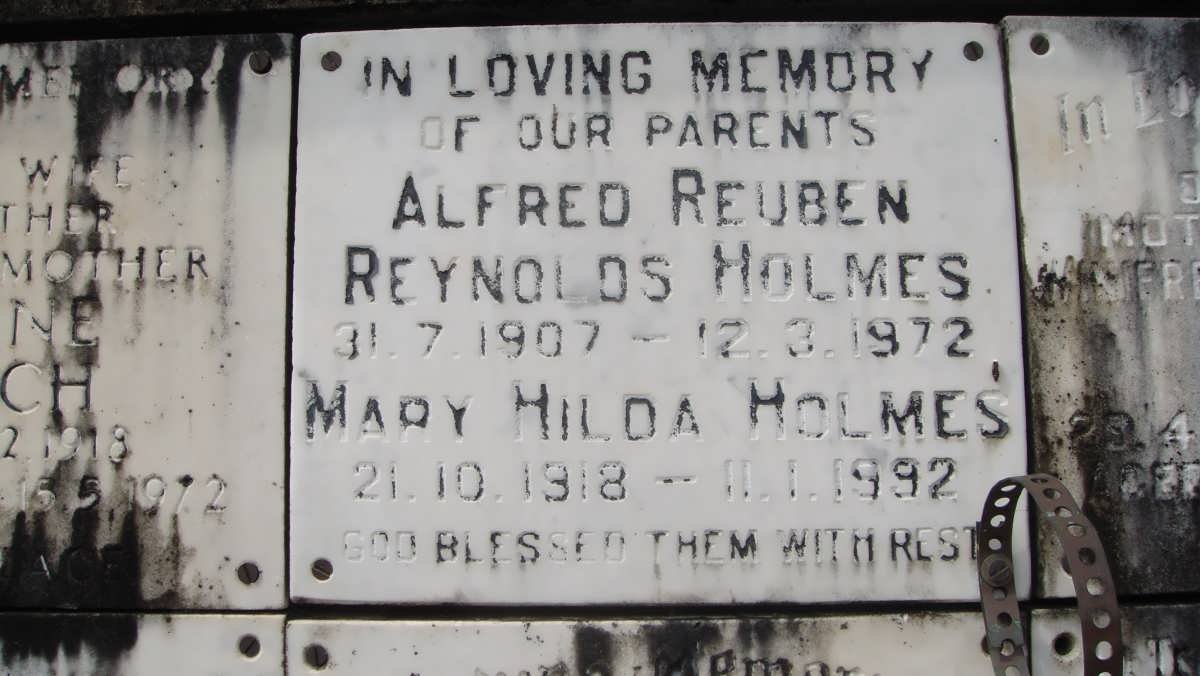 IN LOVING MEMORY
OF OUR PARENTS
ALFRED REUBEN
REYNOLDS HOLMES
31.7.1907 – 12.3.1972
MARY HILDA HOLMES
21.10.1918 – 11.1.1992
GOD BLESSED THEM WITH REST
WIFE
MOTHER
NE
CH
1918
15.5.1972
In